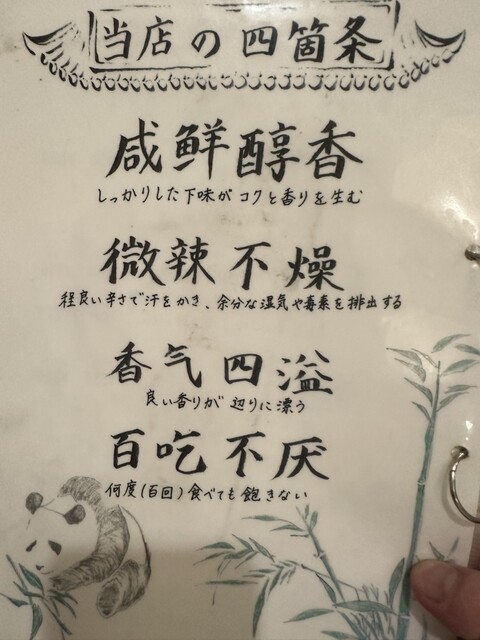 当店の四箇条
咸鮮醇香
しっかりした下味が コクと香りを生む
微辣不燥
程良い辛さで汗をかき、余分な湿気や毒素を排出する
香气四溢
良い香りが辺りに漂う
百吃不厌
何度(百回)食べても飽きない